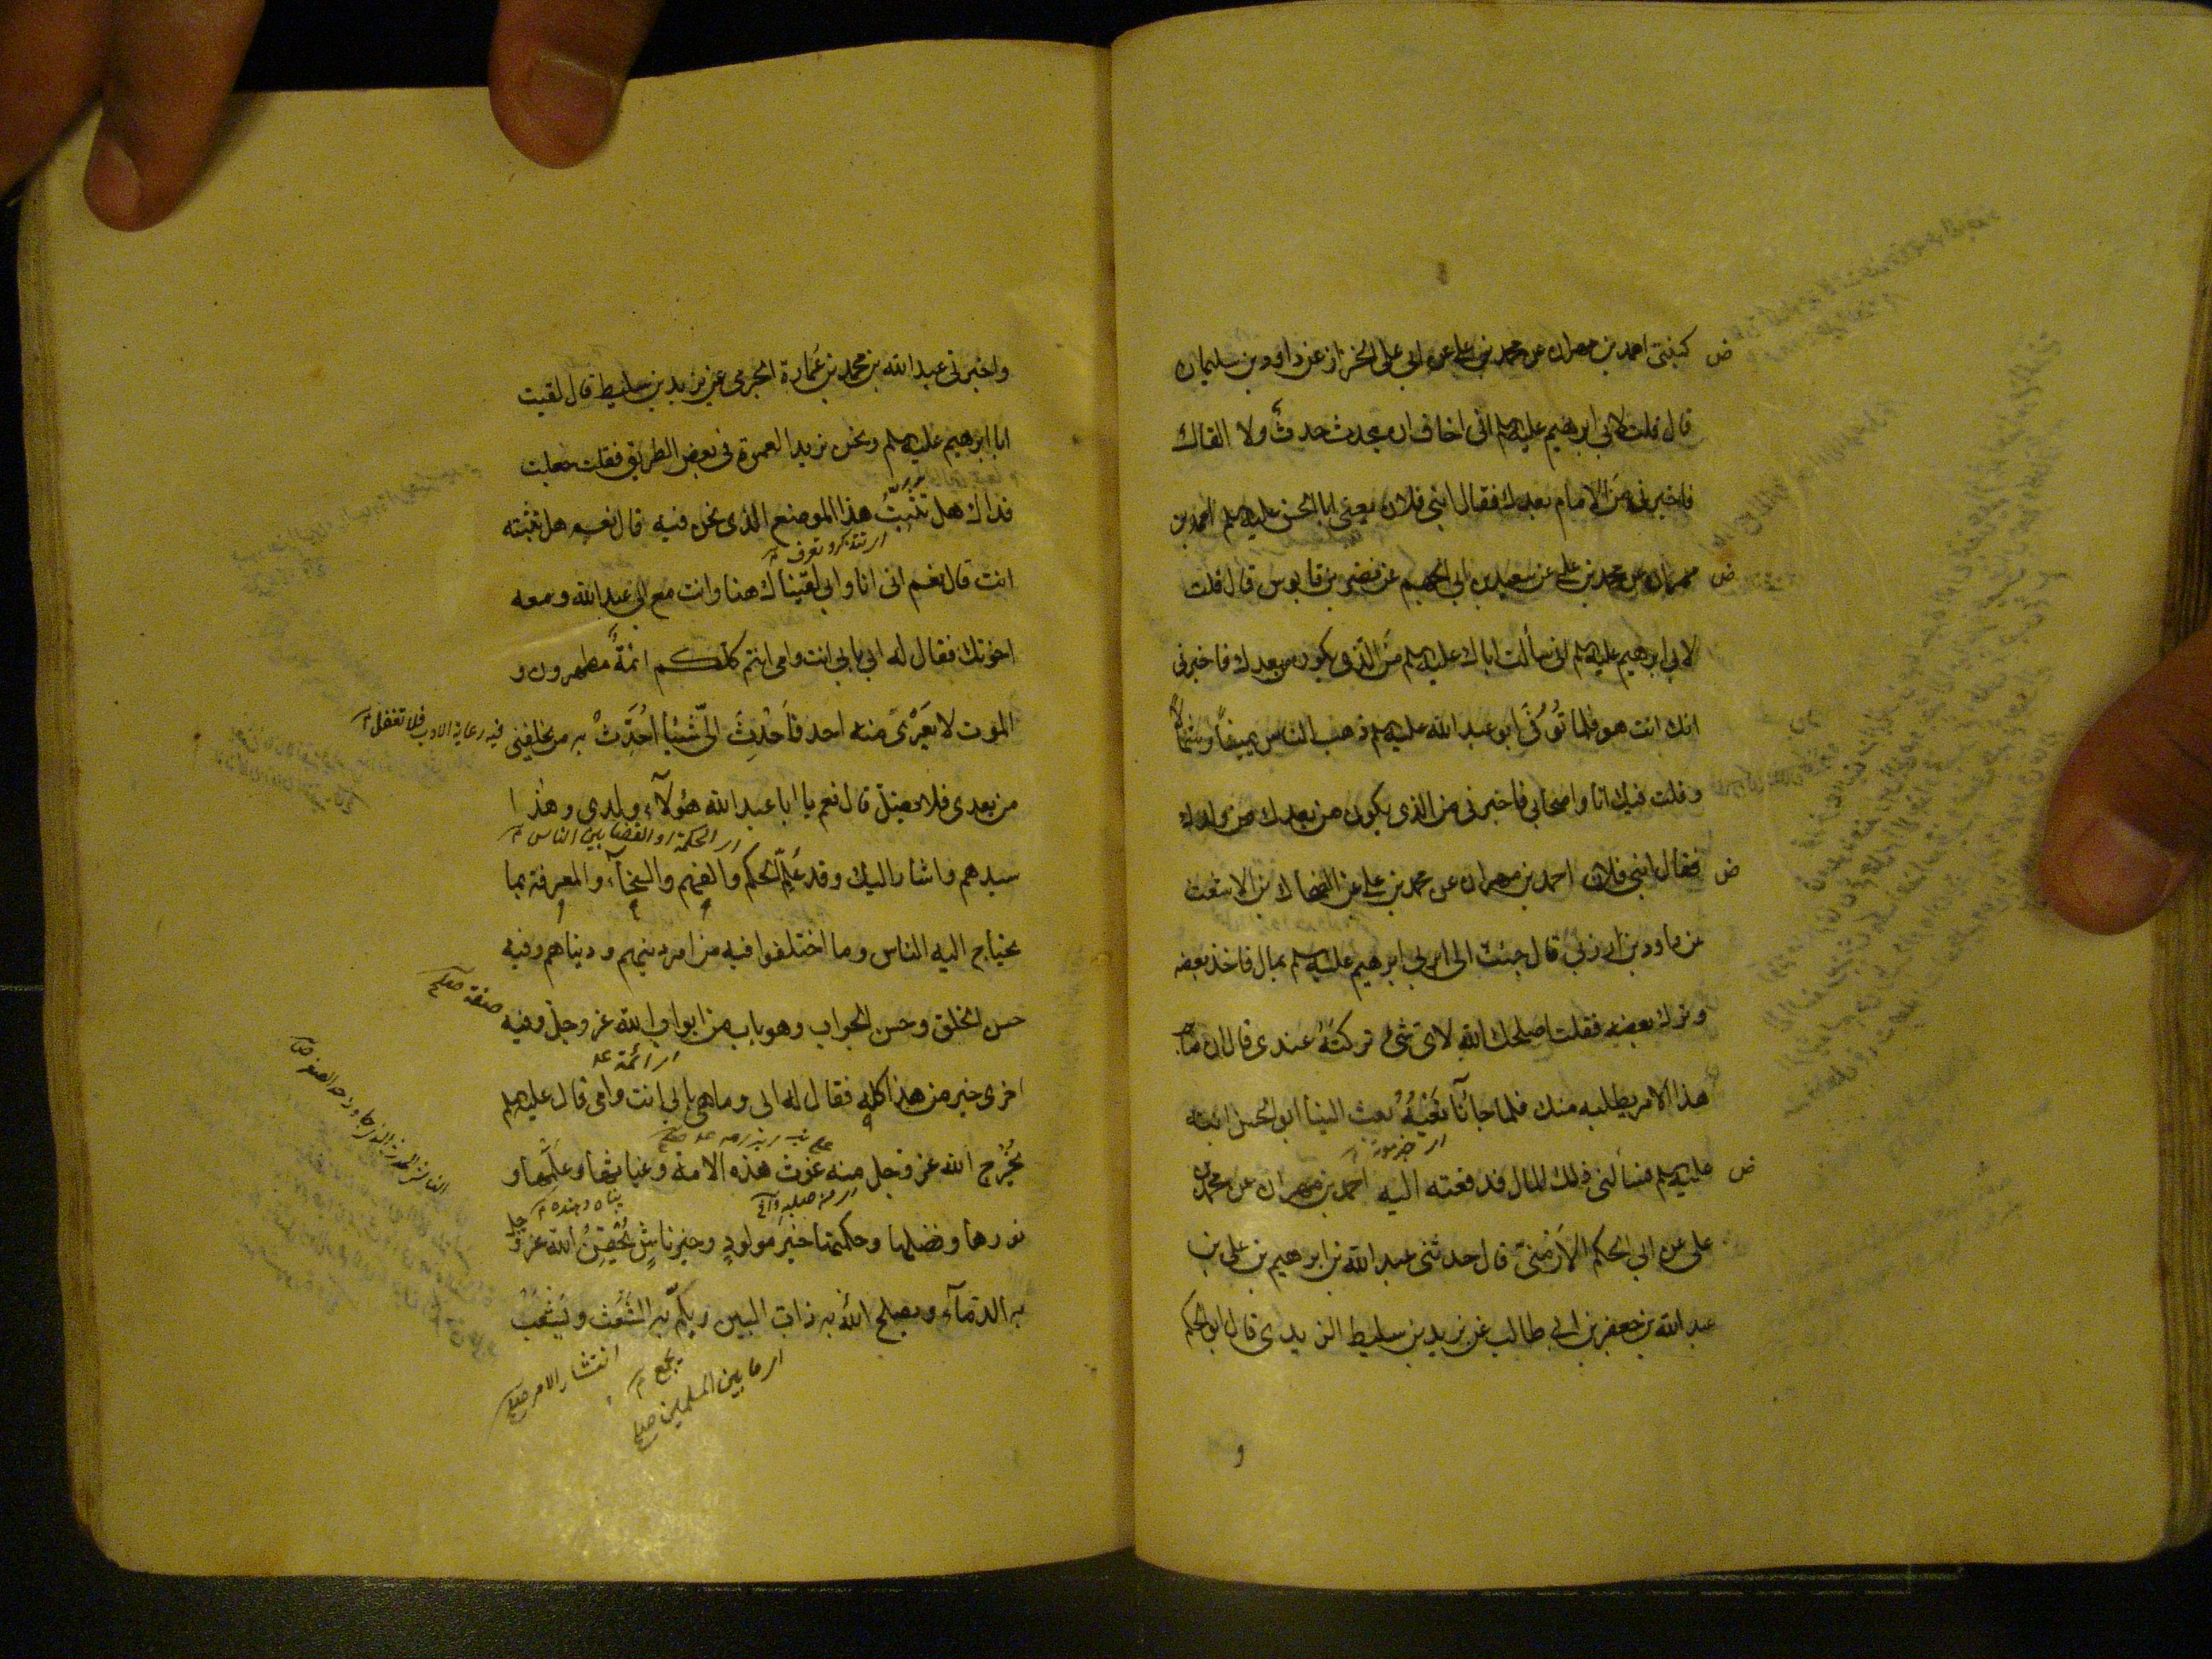 ض كنيتى احمد بن مهران عن محمد بن على عن ابى على الخزاز عن داود بن سليمان
قال قلت لابى ابرهيم عليه السلم انى اخاف ان يحدث حدث ولا القاك
فاخبرنى من الامام بعدك فقال ابنى فلان يعنى ابا الحسن عليه السلم احمد بن
ض مهران عن محمد بن على عن سعيد بن ابى الجهم عن نصر بن قابوس قال قلت
لابى ابرهيم عليه السلم انى سألت اباك عليه السلم من الذى يكون من بعدك فاخبرنى
انك انت هو فلما تُوُفّىَ ابو عبد الله عليه السلم ذهب الناس يمينًا وشمالًا
وقلت فيك انا واصحابى فاخبرنى من الذى يكون من بعدك من ولدك
ض فقال ابنى فلان احمد بن مهران عن محمد بن على عن الضحاك بن الاشعث
عن داود بن زربى قال جئت الى ابى ابرهيم عليه السلم بمال فاخذ بعضه
وترك بعضه فقلت اصلحك الله لاى شئ تركتَهُ عندى قال ان صاحب
هذا الامر يطلبه منك فلما جاءنا نَعْيُهُ بعث الينا ابو الحسن ابنه
ار خبر موته
ض عليه السلم فسألنى ذلك المال فدفعته اليه احمد بن مهران عن محمد بن
على عن ابى الحكم الأرمنىّ قال حدثنى عبد الله بن ابرهيم بن على بن
عبد الله بن جعفر بن ابى طالب عن يزيد بن سليط الزيدى قال ابو الحكم
و
واخبرنى عبد الله بن محمد بن عُمارة الجرمى عن يزيد بن سليط قال لقيت
ابا ابرهيم عليه السلم ونحن نريد العمرة فى بعض الطريق فقلت جعلت
فداك هل تثبّتُ هذا الموضع الذى نحن فيه قال نعم هل تثبته
ار تتذكر وتعرف
انت قال نعم انى انا وابى لقيناك هنا وانت مع ابى عبد الله ومعه
اخوتك فقال له ابى بابى انت وامى انتم كلكم ائمةٌ مطهرون و
الموت لا يَعرَى منه احد فاَحدِث الىّ شيئا اُحدِّثْ به من يخلفنى
فيه رعاية الادب فلا تغفل
من بعدى فلا يضل قال نعم يا ابا عبد الله هؤلآء ولدى وهذا
ار الحكمة او القضا بين الناس
سيدهم واشار اليك وقد عُلِّم الحُكم والفهم والسخآء والمعرفة بما
يحتاج اليه الناس وما اختلفوا فيه من امر دينهم ودنياهم وفيه
حسن الخلق وحسن الجواب وهو باب من ابواب الله عز وجل وفيه
صفة صلح
ار ائمة
اخرى خير من هذا كله فقال له ابى وما هى بابى انت وامى قال عليه السلم
يُخْرِج الله عز وجل منه غوث هذه الامة وغياثها وعلَمها و
نورها وفضلها وحكمتها خيرُ مولودٍ وخير ناشٍ يُحقِنُ الله عز و جل
پناه دهنده
به الدمآء ويصلح الله به ذات البين ويلمّ به الشَّعَث ويَشْعَبُ
ار ما بين المسلمين صلح
يجمع
انتشار الامر صلح